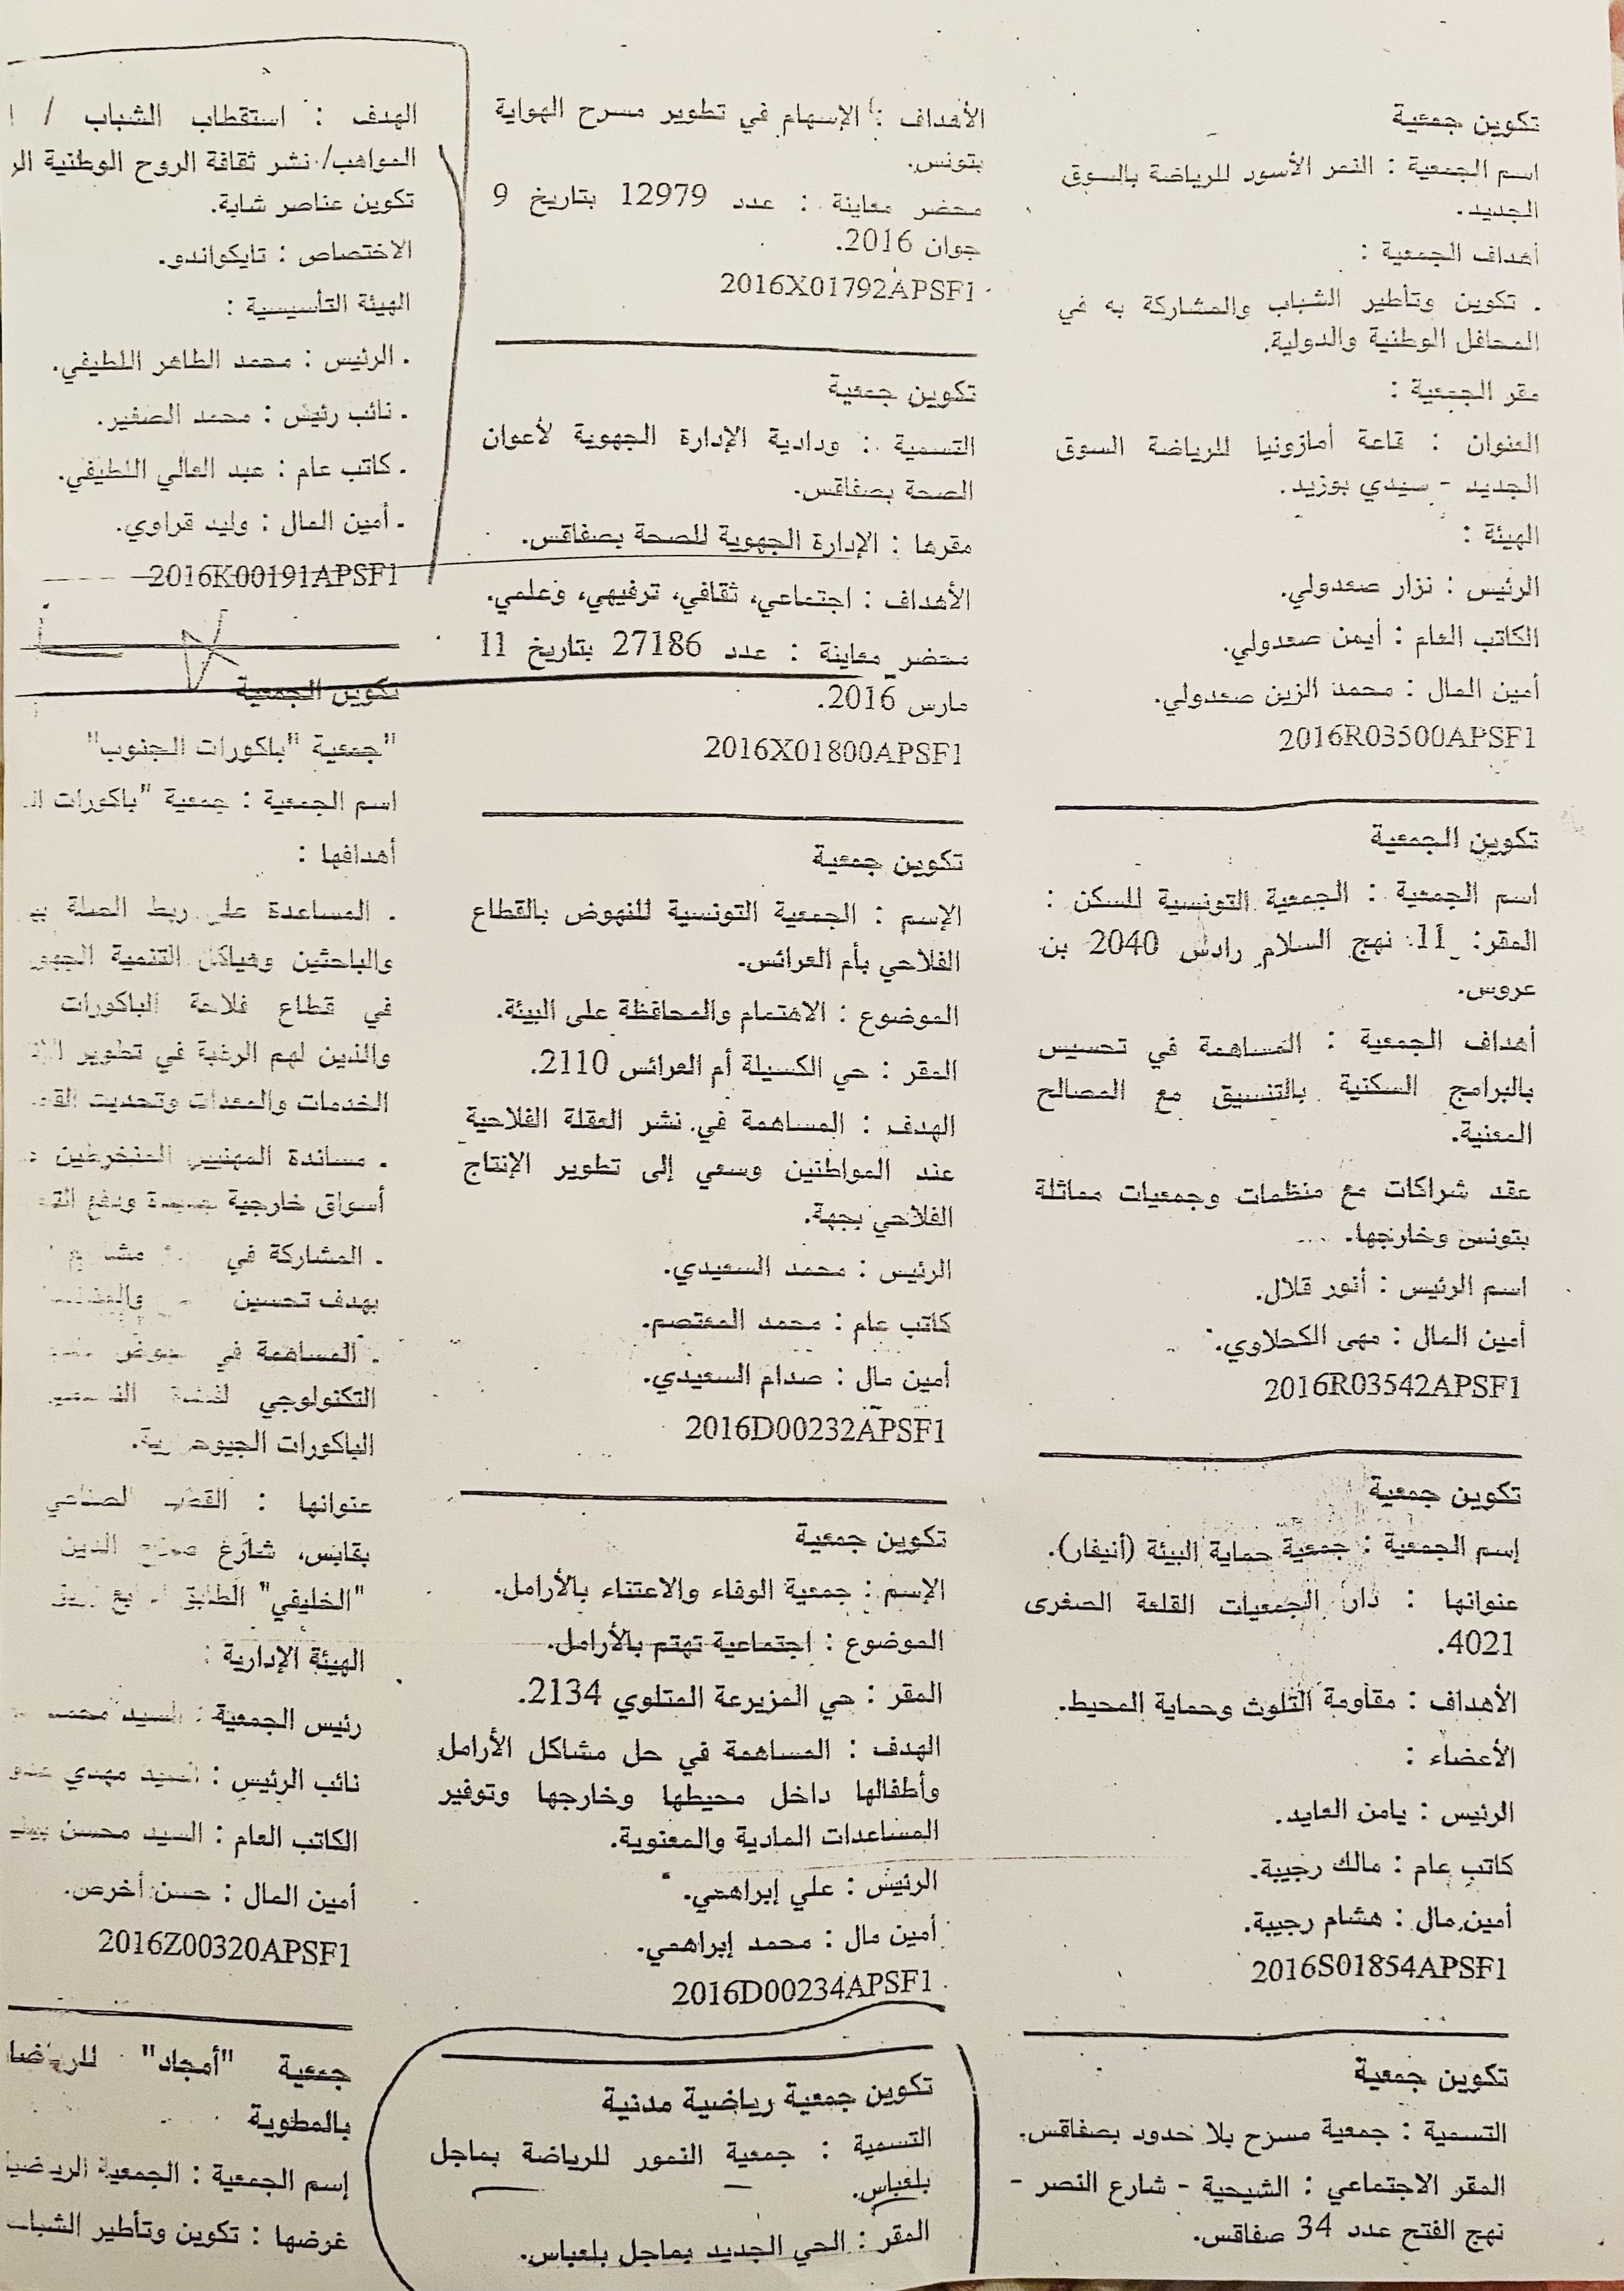 تكوين جمعية
اسم الجمعية : النمر الأسود للرياضة بالسوق
الجديد.
أهداف الجمعية :
. تكوين وتأطير الشباب والمشاركة به في
المحافل الوطنية والدولية.
مقر الجمعية :
العنوان : قاعة أمازونيا للرياضة السوق
الجديد - سيدي بوزيد.
الهيئة :
الرئيس : نزار صعدولي.
الكاتب العام : أيمن صعدولي.
أمين المال : محمد الزين صعدولي.
2016R03500APSF1
تكوين الجمعية
اسم الجمعية : الجمعية التونسية للسكن :
المقر: 11 نهج السلام رادس 2040 بن
عروس.
أهداف الجمعية : المساهمة في تحسيس
بالبرامج السكنية بالتنسيق مع المصالح
المعنية.
عقد شراكات مع منظمات وجمعيات مماثلة
بتونس وخارجها.
اسم الرئيس : أنور قلال.
أمين المال : مهى الكحلاوي.
2016R03542APSF1
تكوين جمعية
إسم الجمعية : جمعية حماية البيئة (أنيفار).
عنوانها : دار الجمعيات القلعة الصغرى
4021.
الأهداف : مقاومة التلوث وحماية المحيط.
الأعضاء :
الرئيس : يامن العايد.
كاتب عام : مالك رجيبة.
أمين مال : هشام رجيبة.
2016S01854APSF1
تكوين جمعية
التسمية : جمعية مسرح بلا حدود بصفاقس.
المقر الاجتماعي : الشيحية - شارع النصر -
نهج الفتح عدد 34 صفاقس.
الأهداف : الإسهام في تطوير مسرح الهواية
بتونس.
محضر معاينة : عدد 12979 بتاريخ 9
جوان 2016.
2016X01792APSF1
تكوين جمعية
التسمية : ودادية الإدارة الجهوية لأعوان
الصحة بصفاقس.
مقرها : الإدارة الجهوية للصحة بصفاقس.
الأهداف : اجتماعي، ثقافي، ترفيهي، وعلمي.
محضر معاينة : عدد 27186 بتاريخ 11
مارس 2016.
2016X01800APSF1
تكوين جمعية
الإسم : الجمعية التونسية للنهوض بالقطاع
الفلاحي بأم العرائس.
الموضوع : الاهتمام والمحافظة على البيئة.
المقر : حي الكسيلة أم العرائس 2110.
الهدف : المساهمة في نشر العقلة الفلاحية
عند المواطنين وسعي إلى تطوير الإنتاج
الفلاحي بجهة.
الرئيس : محمد السعيدي.
كاتب عام : محمد المعتصم.
أمين مال : صدام السعيدي.
2016D00232APSF1
تكوين جمعية
الإسم : جمعية الوفاء والاعتناء بالأرامل.
الموضوع : اجتماعية تهتم بالأرامل.
المقر : حي المزيرعة المتلوي 2134.
الهدف : المساهمة في حل مشاكل الأرامل
وأطفالها داخل محيطها وخارجها وتوفير
المساعدات المادية والمعنوية.
الرئيس : علي إبراهمي.
أمين مال : محمد إبراهمي.
2016D00234APSF1
تكوين جمعية رياضية مدنية
التسمية : جمعية النمور للرياضة بماجل
بلعباس.
المقر : الحي الجديد بماجل بلعباس.
الهدف : استقطاب الشباب /
المواهب/ نشر ثقافة الروح الوطنية
تكوين عناصر شابة.
الاختصاص : تايكواندو.
الهيئة التأسيسية :
. الرئيس : محمد الطاهر اللطيفي.
. نائب رئيس : محمد الصغير.
. كاتب عام : عبد العالي اللطيفي.
. أمين المال : وليد قراوي.
2016K00191APSF1
تكوين الجمعية
"جمعية "باكورات الجنوب"
اسم الجمعية : جمعية "باكورات
أهدافها :
. المساعدة على ربط الصلة
والباحثين وهياكل التنمية
في قطاع فلاحة الباكورات
والذين لهم الرغبة في تطوير
الخدمات والمعدات وتحديث
. مساندة المهنيين المنخرطين
أسواق خارجية جديدة ودفع
. المشاركة في
بهدف تحسين
. المساهمة في
التكنولوجي لفائدة
الباكورات
عنوانها : القطب الصناعي
بقابس، شارع الدين
"الخليفي" الطابق
الهيئة الإدارية :
رئيس الجمعية : السيد محمد
نائب الرئيس : السيد مهدي
الكاتب العام : السيد محسن
أمين المال : حسن أخرص.
2016Z00320APSF1
جمعية "أمجاد"
بالمطوية
إسم الجمعية : الجمعية
غرضها : تكوين وتأطير